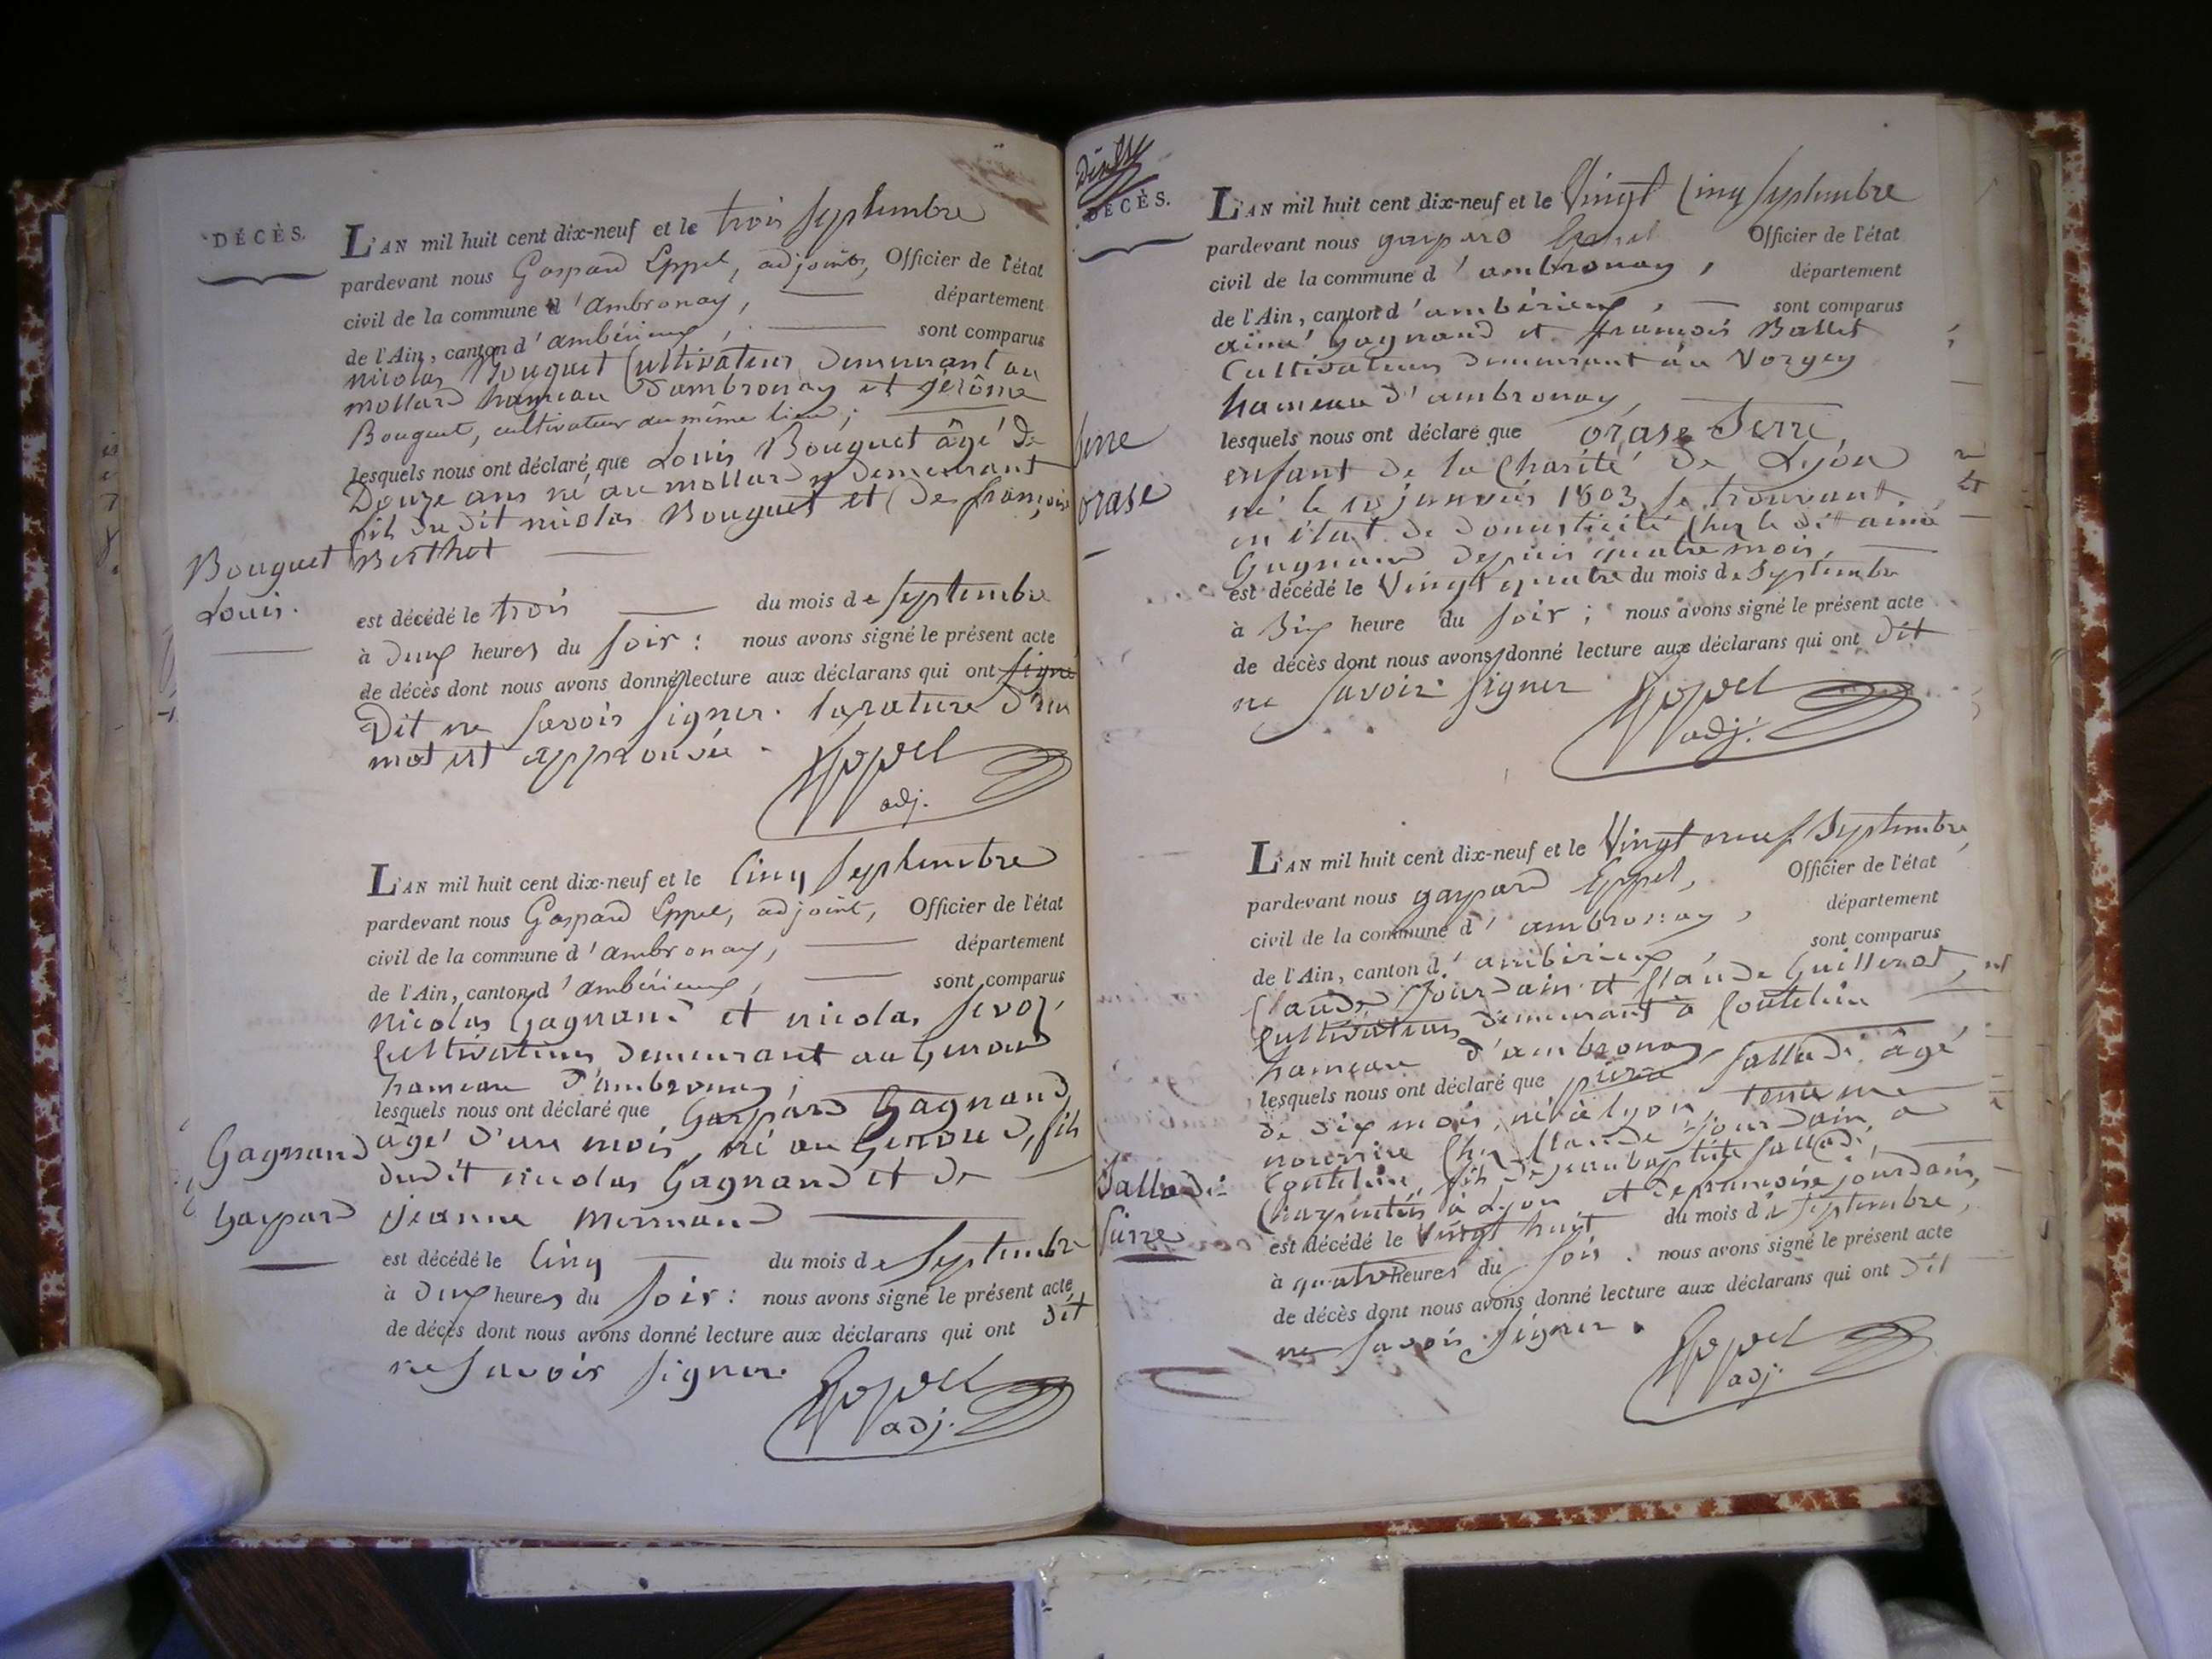 DÉCÈS.
L'AN mil huit cent dix-neuf et le trois Septembre
pardevant nous Gaspard Eppel, adjoint, Officier de l'état
civil de la commune d'ambronay, département
de l'Ain, canton d'ambérieux, sont comparus
nicolas Bouguet Cultivateur demeurant au
mollard hameau d'ambronay et jérôme
Bouguet, cultivateur du même lieu;
lesquels nous ont déclaré que Louis Bouguet âgé de
Douze ans né au mollard y demeurant
fils du dit nicolas Bouguet et de françoise
Berthet
Bouguet
Louis.
est décédé le trois du mois de Septembre
à deux heures du soir: nous avons signé le présent acte
de décès dont nous avons donné lecture aux déclarans qui ont signé
Dit ne savoir signer. la rature d'un
mot est approuvée.
Eppel
adj.
L'AN mil huit cent dix-neuf et le Cinq Septembre
pardevant nous Gaspard Eppel, adjoint, Officier de l'état
civil de la commune d'ambronay, département
de l'Ain, canton d'ambérieux, sont comparus
nicolas Gagnand et nicolas
Cultivateurs demeurant au Genoud
hameau d'ambronay;
lesquels nous ont déclaré que Gaspard Gagnand,
âgé d'un mois, né au Genoud, fils
dudit nicolas Gagnand et de
jeanne mermand
Gagnand
Gaspard
est décédé le Cinq du mois de Septembre
à deux heures du soir: nous avons signé le présent acte
de décès dont nous avons donné lecture aux déclarans qui ont dit
ne savoir signer.
Eppel
adj.
DÉCÈS.
L'AN mil huit cent dix-neuf et le Vingt Cinq Septembre
pardevant nous gaspard Eppel Officier de l'état
civil de la commune d'ambronay, département
de l'Ain, canton d'ambérieux, sont comparus
aimé gagnand et françois Ballet
Cultivateurs demeurant au Vorgey
hameau d'ambronay,
lesquels nous ont déclaré que orase Serre,
enfant de la Charité de Lyon
né le janvier 1803 se trouvant
en état de domesticité chez le dit aimé
Gagnand depuis quatre mois,
Serre
orase
est décédé le Vingt quatre du mois de Septembre
à Six heure du soir; nous avons signé le présent acte
de décès dont nous avons donné lecture aux déclarans qui ont dit
ne savoir signer
Eppel
adj.
L'AN mil huit cent dix-neuf et le Vingt neuf Septembre,
pardevant nous gaspard Eppel, Officier de l'état
civil de la commune d'ambronay, département
de l'Ain, canton d'ambérieux, sont comparus
Claude Jourdain et Claude Guillerot,
Cultivateurs demeurant à Coutelieu
hameau d'ambronay
lesquels nous ont déclaré que pierre Salladi âgé
de dix mois, né à lyon, tenu en
nourrice chez Claude Jourdain, a
Coutelieu, fils de jean baptiste Salladi,
Charpentier à Lyon et de françoise jourdain,
Salladi
pierre
est décédé le Vingt huit du mois de Septembre,
à quatre heures du soir. nous avons signé le présent acte
de décès dont nous avons donné lecture aux déclarans qui ont dit
ne savoir signer.
Eppel
adj.